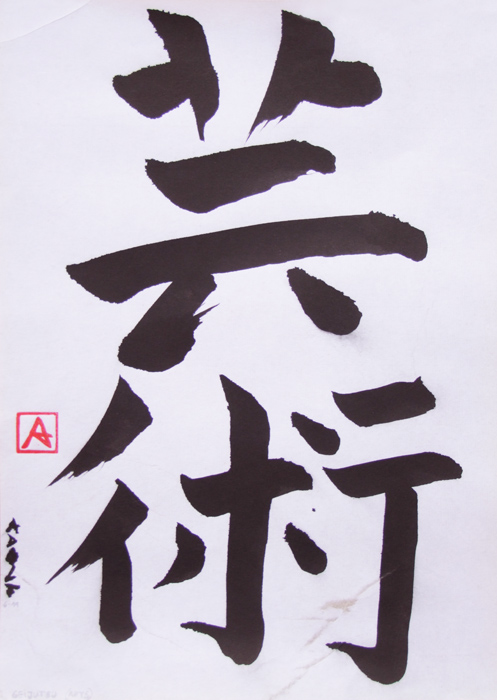 芸術
A